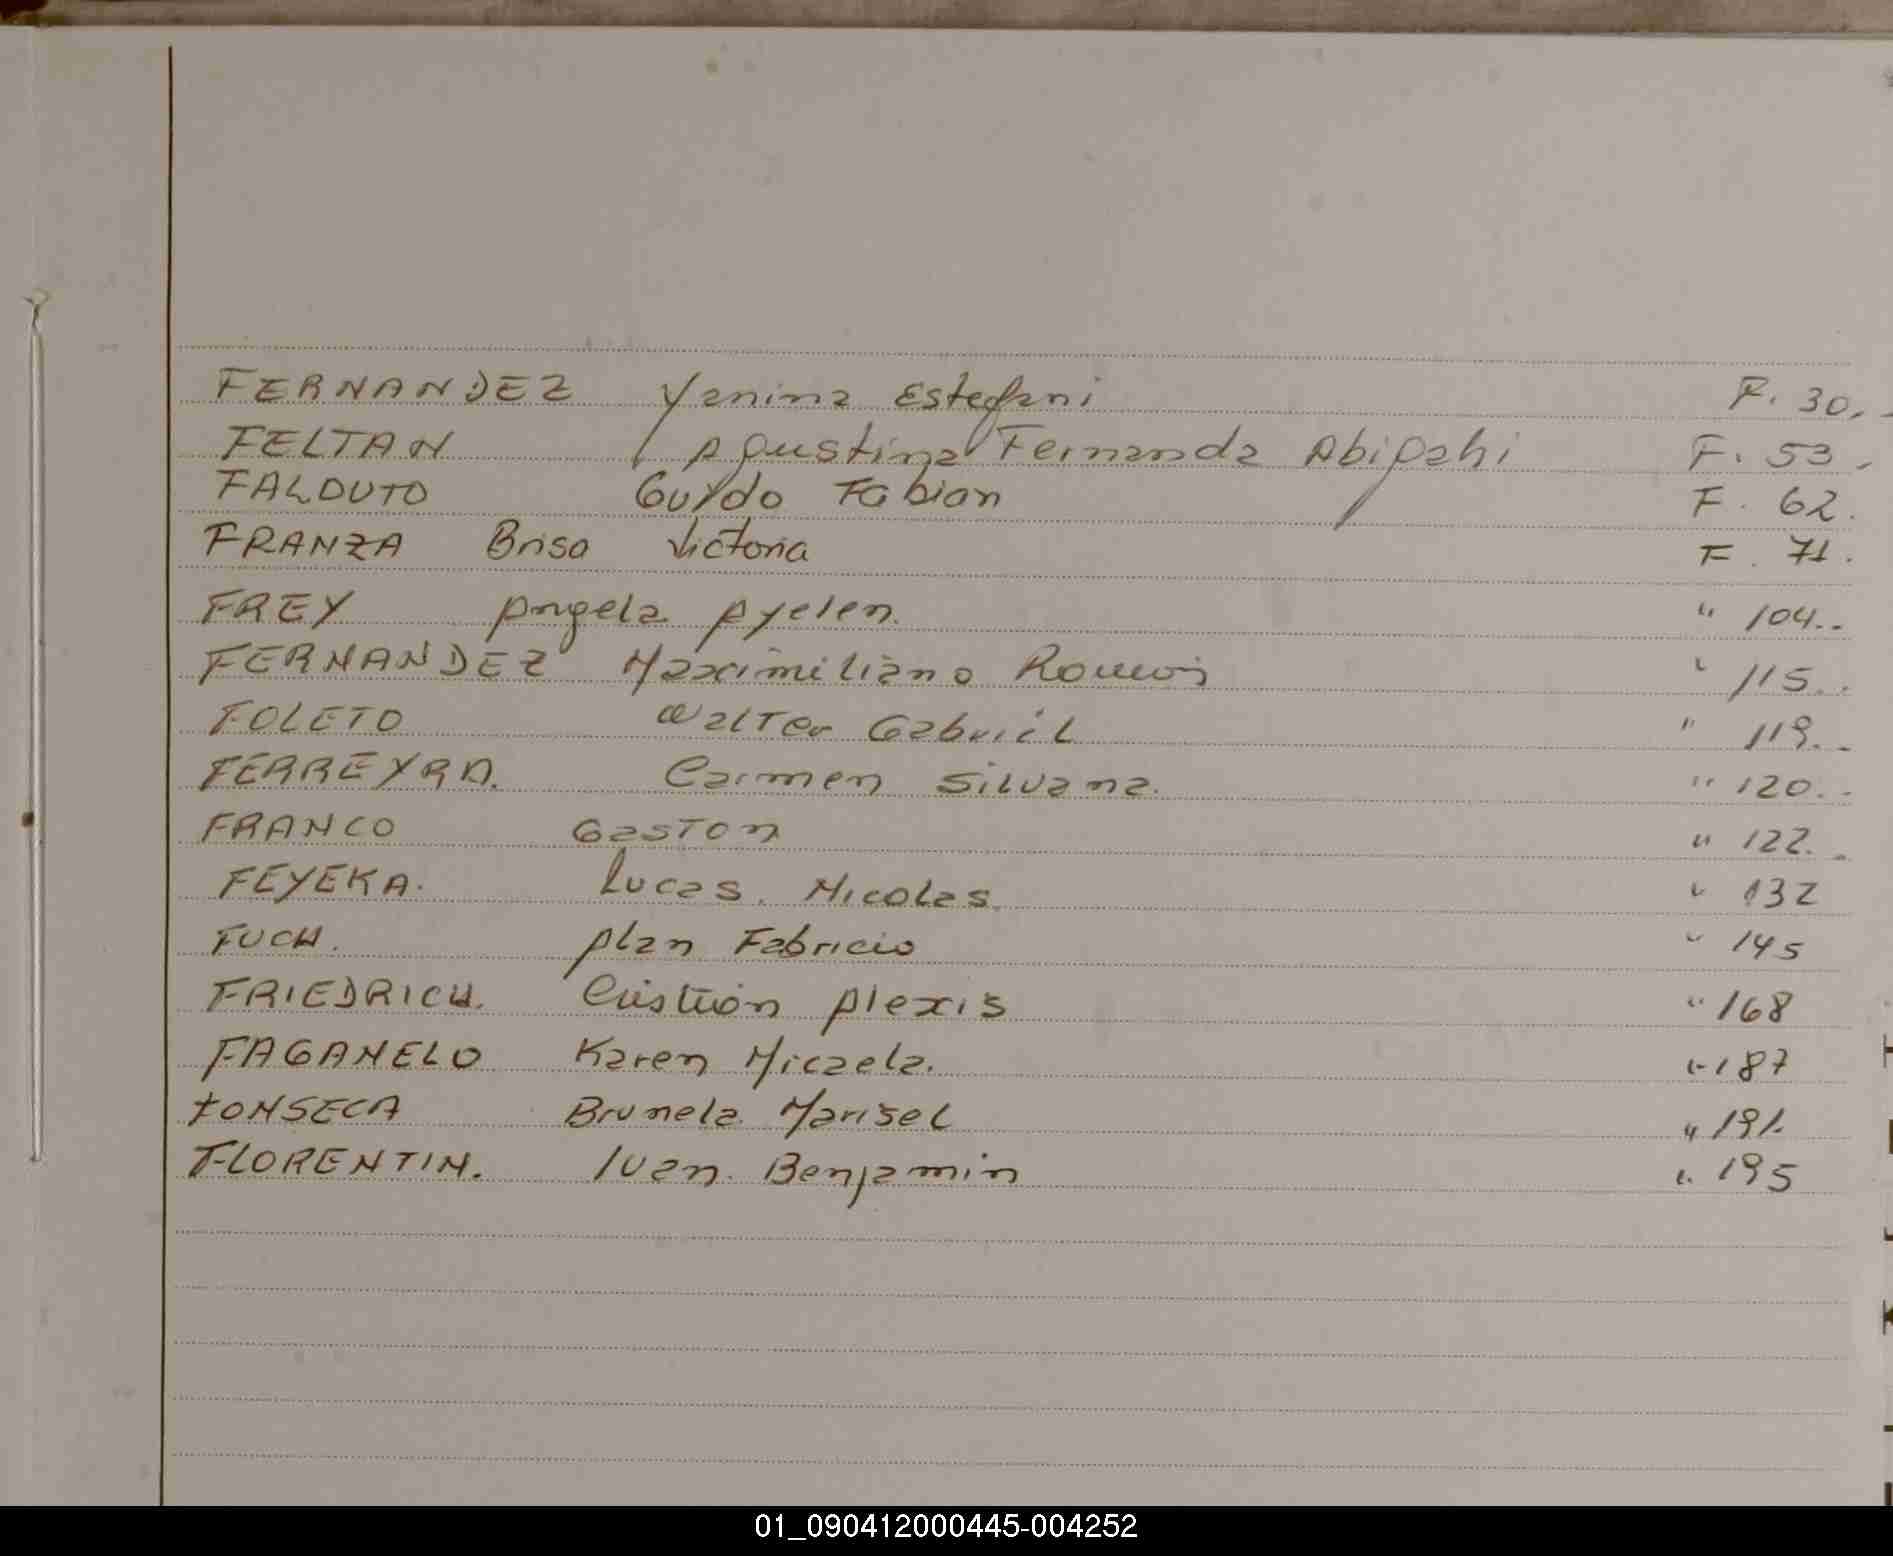 FERNANDEZ Yanina Estefani F. 30.
FELTAN Agustina Fernanda Abigahi F. 53.
FALDUTO Guydo Fabian F. 62.
FRANZA Brisa Victoria F. 71.
FREY Angela Ayelen. " 104..
FERNANDEZ Maximiliano Ramón " 115..
FOLETO Walter Gabriel " 119..
FERREYRA. Carmen Silvana. " 120..
FRANCO Gaston " 122..
FEYEKA. Lucas. Nicolas. " 132
FUCH. Alan Fabricio " 145
FRIEDRICH. Cristian Alexis " 168
FAGANELO Karen Micaela. " 187
FONSECA Brunela Marisel " 191.
FLORENTIN. Ivan. Benjamin " 195
01_090412000445-004252